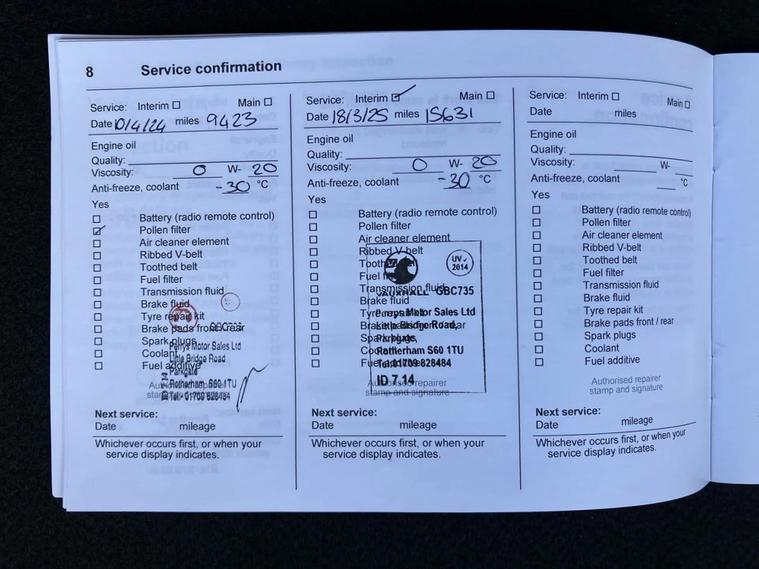 8 Service confirmation
Service: Interim Main
Date 10/4/24 miles 9423
Engine oil
Quality:
Viscosity: 0 W- 20
Anti-freeze, coolant -30 °C
Yes
Battery (radio remote control)
Pollen filter
Air cleaner element
Ribbed V-belt
Toothed belt
Fuel filter
Transmission fluid
Brake fluid
Tyre repair kit
Brake pads front / rear
Spark plugs
Perrys Motor Sales Ltd
Coolant
Little Bridge Road
Fuel additive
Parkgate
Rotherham S60 1TU
Tel: 01709 828484
Next service:
Date mileage
Whichever occurs first, or when your
service display indicates.
Service: Interim Main
Date 18/3/25 miles 15631
Engine oil
Quality:
Viscosity: 0 W- 20
Anti-freeze, coolant -30 °C
Yes
Battery (radio remote control)
Pollen filter
Air cleaner element
Ribbed V-belt
UV
2014
Toothed belt
Fuel filter
Transmission fluid
VAUXHALL GBC735
Brake fluid
Tyre repair kit
Perrys Motor Sales Ltd
Brake pads front / rear
Little Bridge Road,
Spark plugs
Parkgate,
Coolant
Rotherham S60 1TU
Fuel additive
Tel: 01709 828484
ID 7.14
Authorised repairer
stamp and signature
Next service:
Date mileage
Whichever occurs first, or when your
service display indicates.
Service: Interim Main
Date miles
Engine oil
Quality:
Viscosity: W-
Anti-freeze, coolant °C
Yes
Battery (radio remote control)
Pollen filter
Air cleaner element
Ribbed V-belt
Toothed belt
Fuel filter
Transmission fluid
Brake fluid
Tyre repair kit
Brake pads front / rear
Spark plugs
Coolant
Fuel additive
Authorised repairer
stamp and signature
Next service:
Date mileage
Whichever occurs first, or when your
service display indicates.